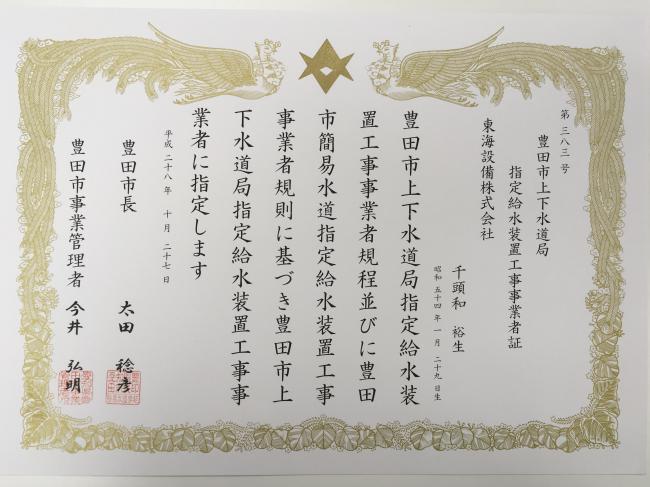 第 三八三 号
豊田市上下水道局
指定給水装置工事事業者証
東海設備株式会社
千頭和 裕生
昭和 五十四 年 一 月 二十九 日生
豊田市上下水道局指定給水装
置工事事業者規程並びに豊田
市簡易水道指定給水装置工事
事業者規則に基づき豊田市上
下水道局指定給水装置工事事
業者に指定します
平成 二十八 年 十 月 二十七 日
豊田市長 太田 稔彦
豊田市事業管理者 今井 弘明